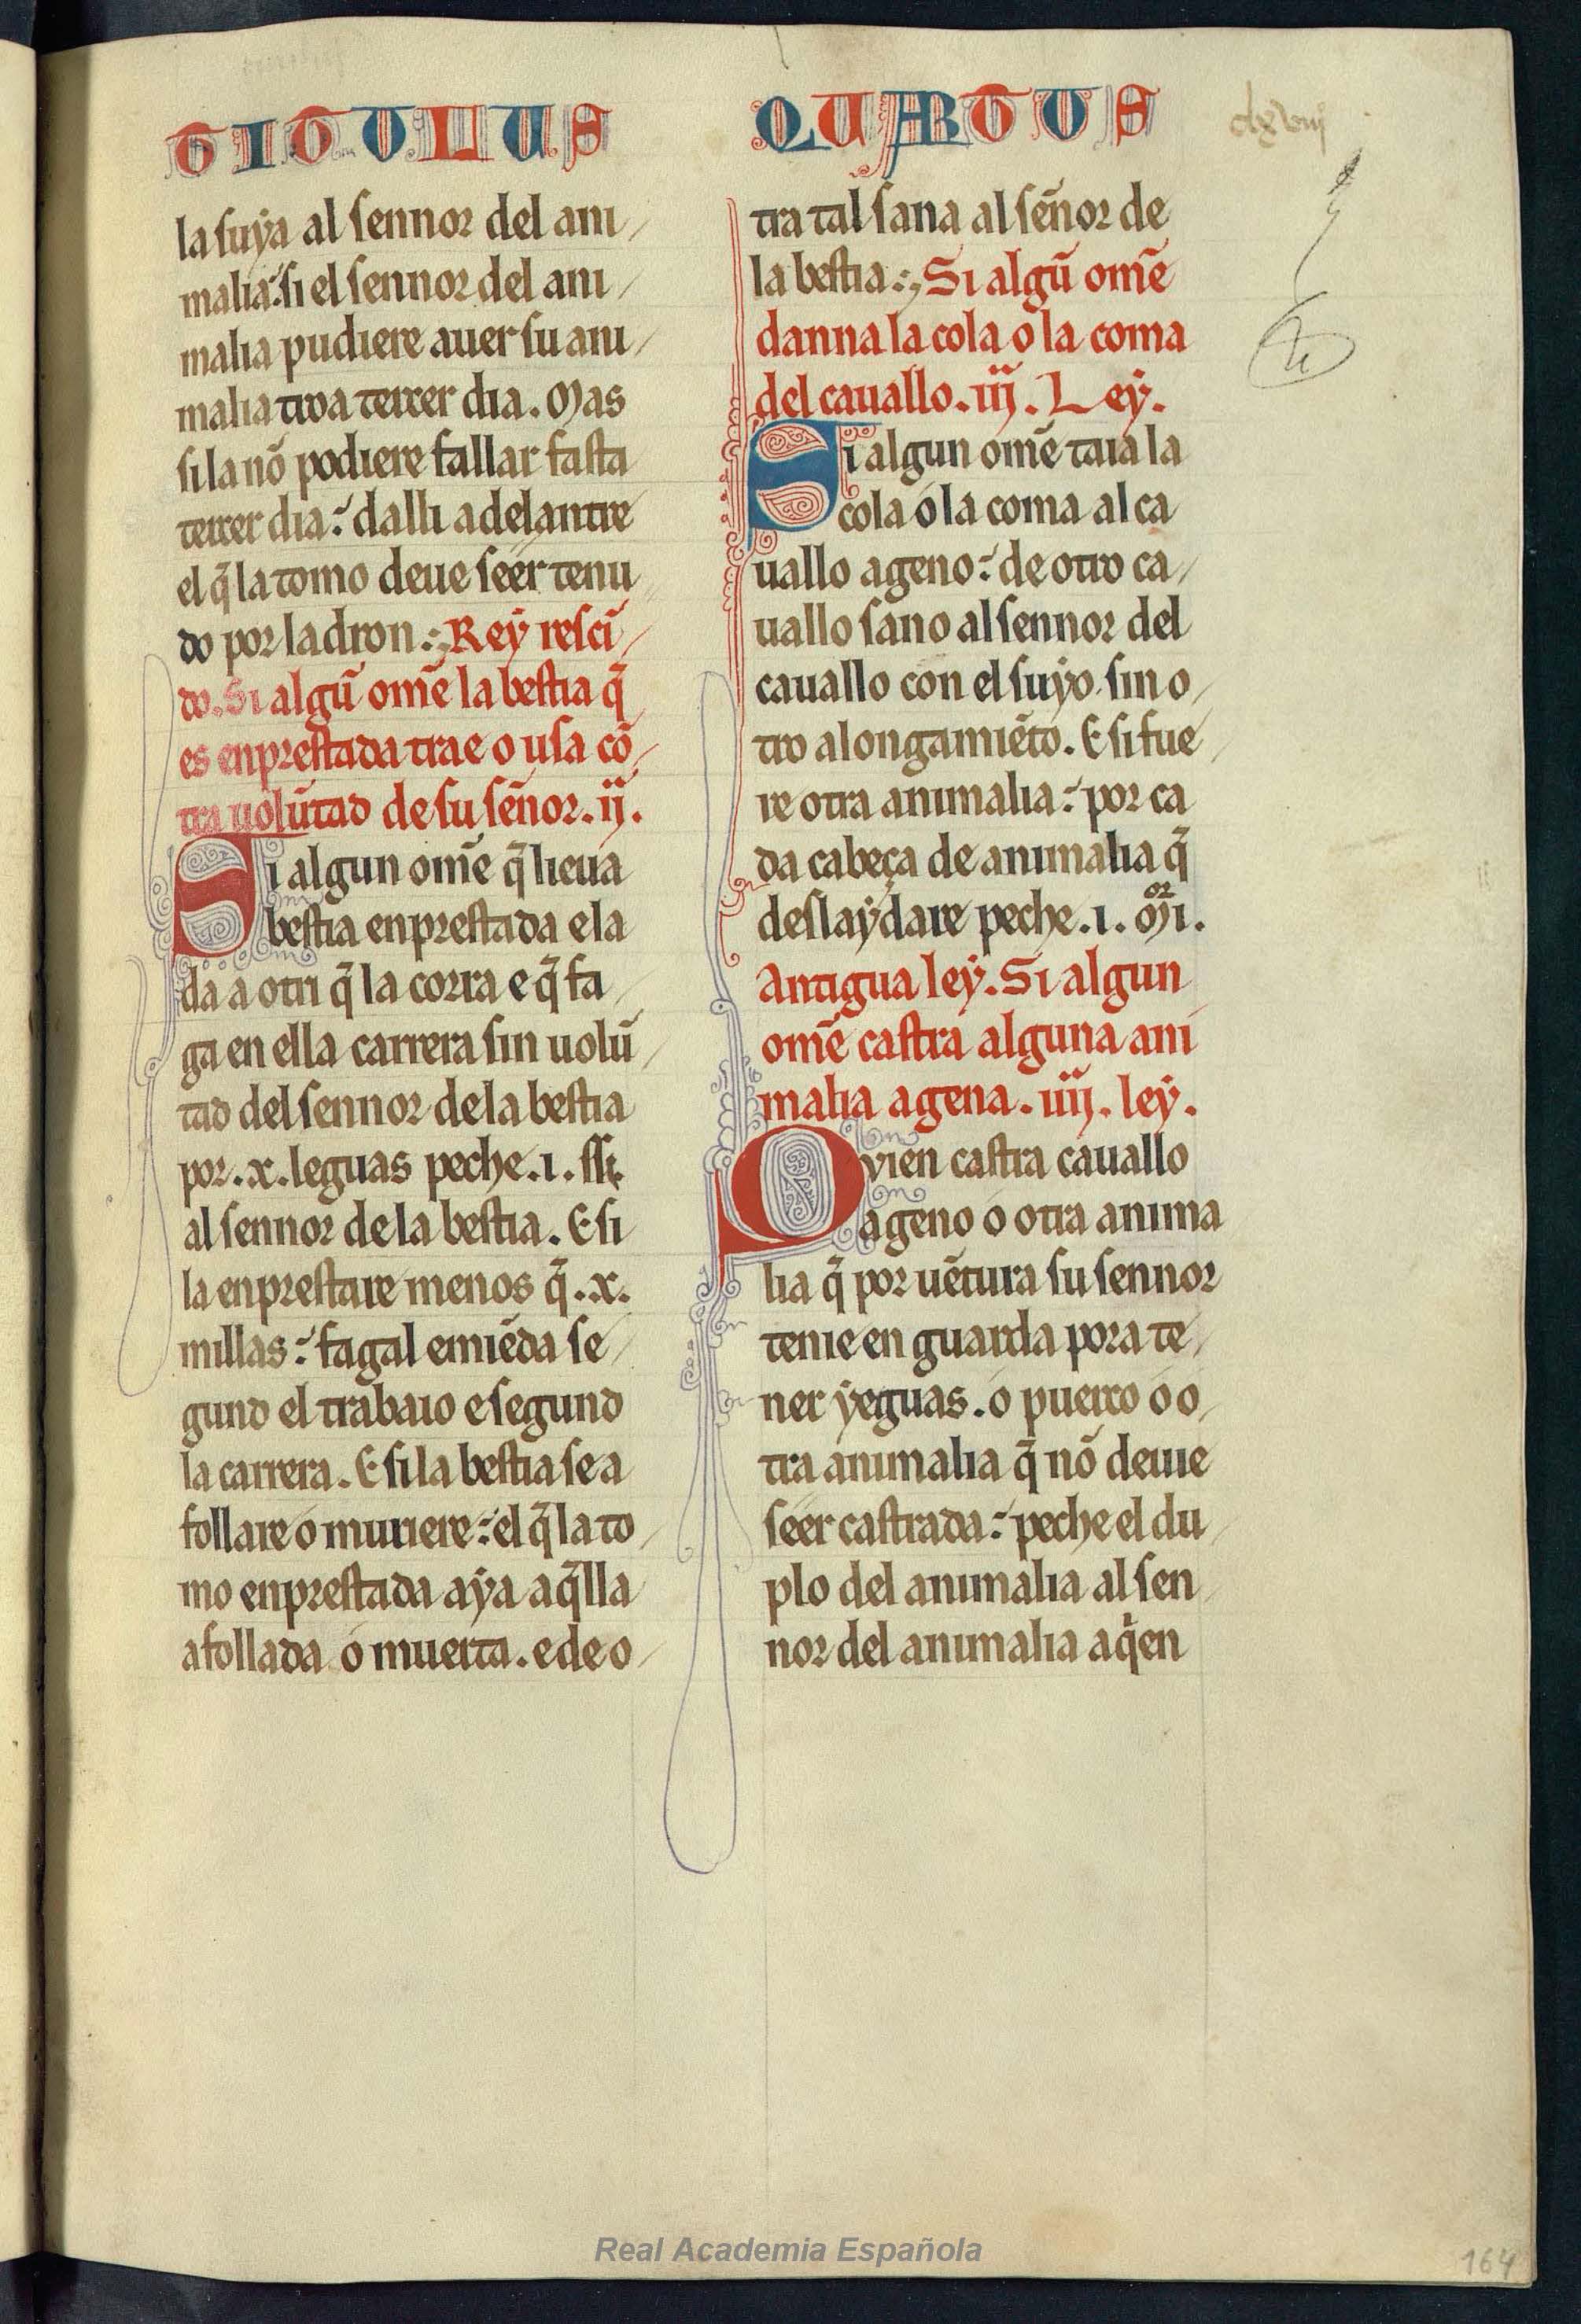 TITVLUS QUARTUS
clxviij
la suẏa al sennor del ani
malia: si el sennor del ani
malia pudiere auer su ani
malia troa tercer dia. Mas
si la nõ podiere fallar fasta
tercer dia: dalli adelantre
el q̃ la tomo deue seer tenu
do por ladron. Reẏ resci
do. Si algũ om̃e la bestia q̃
es enprestada trae o usa cõ
tra uolũtad de su sẽnor. ij.
Si algun om̃e q̃ lieua
bestia enprestada e la
da a otri q̃ la corra e q̃ fa
ga en ella carrera sin uolũ
tad del sennor de la bestia
por .x. leguas peche .i. ss
al sennor de la bestia. E si
la enprestare menos q̃ .x.
millas: fagal emiẽda se
gund el trabaio e segund
la carrera. E si la bestia se a
follare o muriere: el q̃ la to
mo enprestada aẏa aq̃lla
afollada o muerta. e de o
tra tal sana al sẽnor de
la bestia. Si algũ om̃e
danna la cola o la coma
del cauallo. iij. Leẏ.
Si algun om̃e taia la
cola o la coma al ca
uallo ageno: de otro ca
uallo sano al sennor del
cauallo con el suẏo sin o
tro alongamiẽto. E si fue
re otra animalia: por ca
da cabeça de animalia q̃
deslaẏdare peche .i. mor̃i.
Antigua leẏ. Si algun
om̃e castra alguna ani
malia agena. iiij. leẏ.
Qvien castra cauallo
ageno o otra anima
lia q̃ por uẽtura su sennor
tenie en guarda pora te
ner ẏeguas. o puerco o o
tra animalia q̃ nõ deuie
seer castrada: peche el du
plo del animalia al sen
nor del animalia a q̃en
Real Academia Española
164